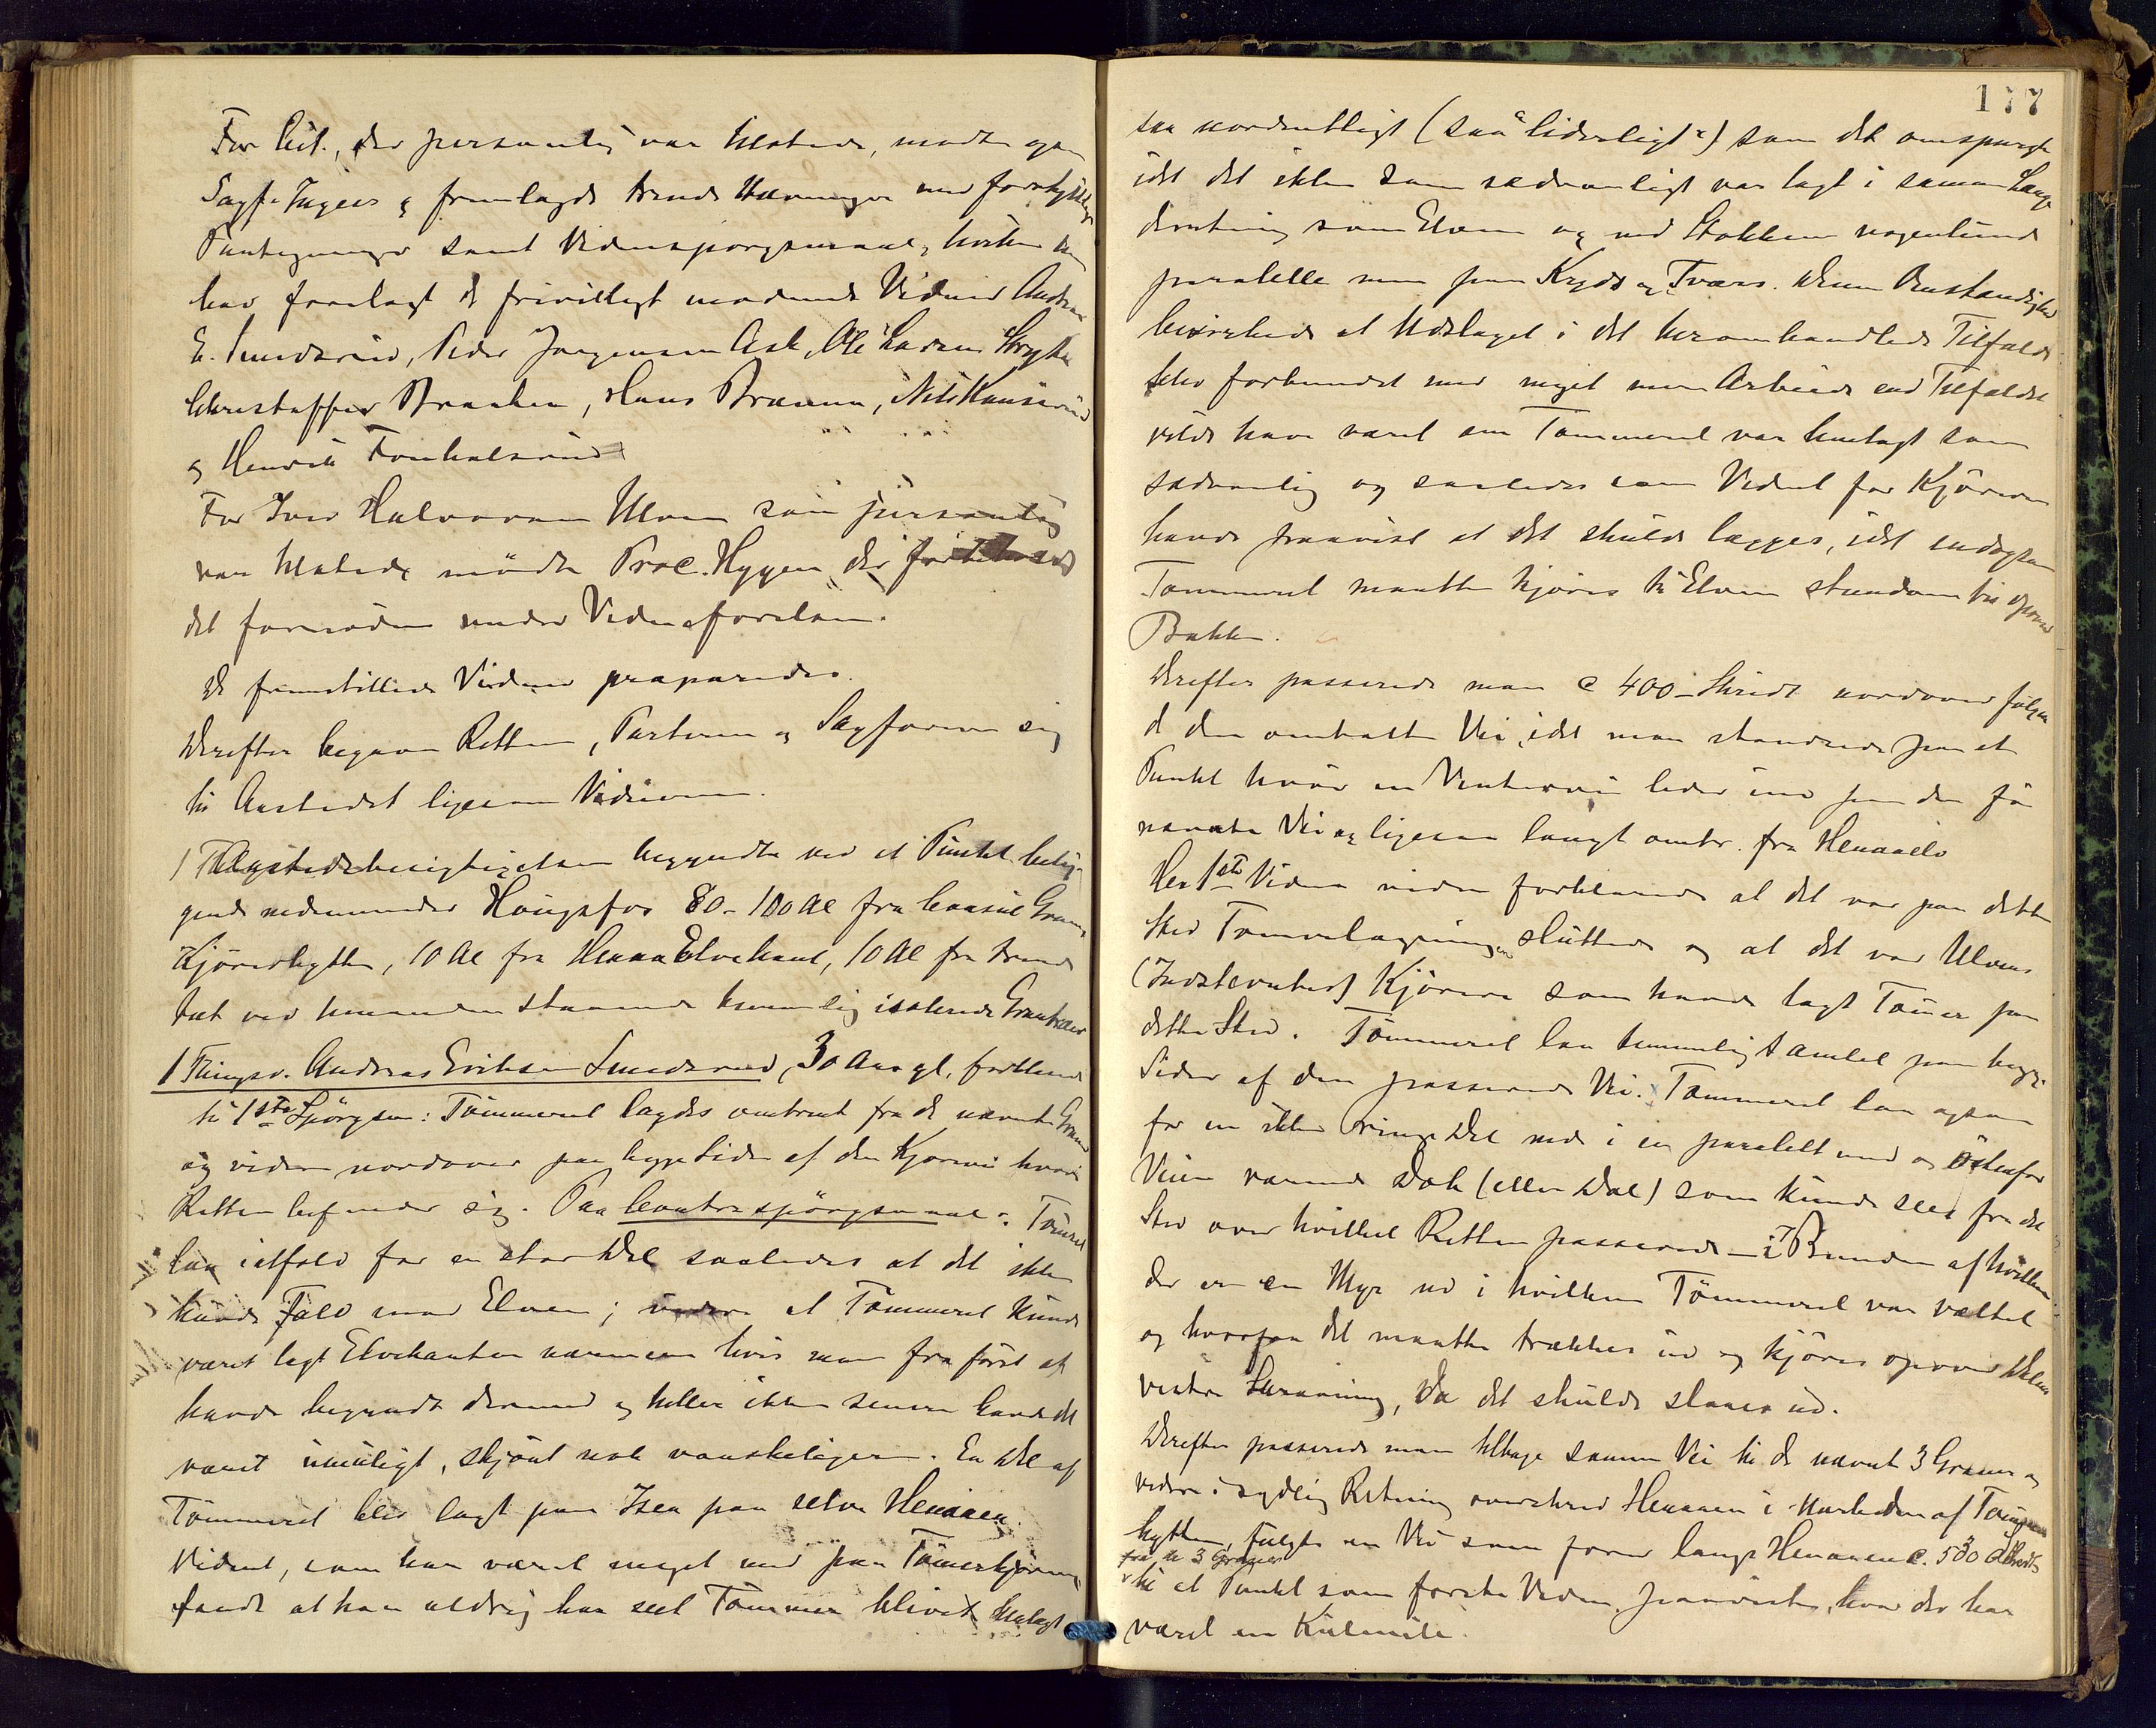 For Cit., der personlig var tilstede, mødte ogsaa
Sagf. Ingier & fremlagde trende Stævninger med forskjellige
Paategninger samt Vidnespørgsmaal, hvilke
blev forelagt de frivilligt mødende Vidner Andreas
E. Smedsrud, Peder Jørgensen Ask, Ole Larsen Stryken
Christoffer Braaten, Hans Brænna,
& Henrik
For Iver Halvorsen Moen som personlig
var tilstede mødte Proc. Hyggen der
det fornødne under Vidneførelsen.
De fremstillede Vidner præparedes.
Derefter begav Retten, Parterne & Sagførerne sig
til Aastedet ligesom Vidnerne.
Aastedsbesigtigelsen begyndte ved et Punkt belig-
gende nedenunder Høugsfos 80-100 Al fra Consul Grans
Kjørerhytte, 10 Al fra Henaa Elvekant, 10 Al fra trende
tæt ved hinanden staaende temmelig isolerede Grantræer
1 Thingsv. Andreas Eriksen Smedsrud, 30 Aar gl. forklarede
til 1ste Spørgsm: Tømmeret lagdes omtrent fra de nævnte Graner
og videre nordover paa begge Sider af den Kjørevei hvori
Retten befinder sig. Paa Contraspørgsmaal: Tømret
laa ialfald for en stor Del saaledes at det ikke
havde Fald mod Elven; videre at Tømmeret kunde
været lagt Elvekanten nærmere hvis man fra først af
havde begyndt dermed & heller ikke senere havde det
været umuligt, skjønt nok vanskeligere. En Del af
Tømmeret blev lagt paa Isen paa selve Henaaen.
Vidnet, som har været meget med paa Tømmerkjøring
sagde at han aldrig har seet Tømmer blivet henlagt
177
saa uordentligt (saa "liderligt") som det omspurgte
idet det ikke som sædvanligt var lagt i samme Længde-
retning som Elven og med Stokkene nogenlunde
paralelle men paa Kryds og Tværs. Denne Omstændighed
bevirkede at Udslaget i det heromhandlede Tilfælde
blev forbundet med meget mere Arbeide end Tilfældet
vilde have været om Tømmeret var henlagt som
sædvanlig og saaledes som Vidnet for Kjøreren
havde paavist at det skulde lægges, idet endogsaa
Tømmeret maatte kjøres til Elven stundom til opover
Bakke.
Derefter passerede man c 400 Skridt nordover følgen-
d den omtalte Vei, idet man standsede paa et
Punkt hvor en Vintervei leder ind paa den før
nævnte Vei og ligesaa langt omtr. fra Henaaelv
Her 1ste Vidne videre forklarede at det var paa dette
Sted Tømmerlægningen sluttede og at det var Moens
(Indstevntes) Kjørere som havde lagt Tømer paa
dette Sted. Tømmeret laa temmelig samlet paa begge
Sider af den passerede Vei. Tømmeret laa ogsaa
for en ikke ringe Del nede i en paralelt med og østenfor
Veien værende Dok (eller Dal) som kunde sees fra det
Sted over hvilket Retten passerede - i Bunden af hvilken
der er en Myr ned i hvilken Tømmeret var væltet
og hvorfra det maatte trækkes ud og kjøres opover Dalens
vestre Skraaning, da det skulde slaaes ud.
Derefter passerede man tilbage samme Vei til de nævnte 3 Graner og
videre i sydlig Retning overskred Henaaen i Nærheden af
hytten, fulgte en Vei som fører langs Henaaen c. 530 Skridt
fra de 3 Graner
til et Punkt som første Vidne paaviste, hvor der har
været en Kulmile.